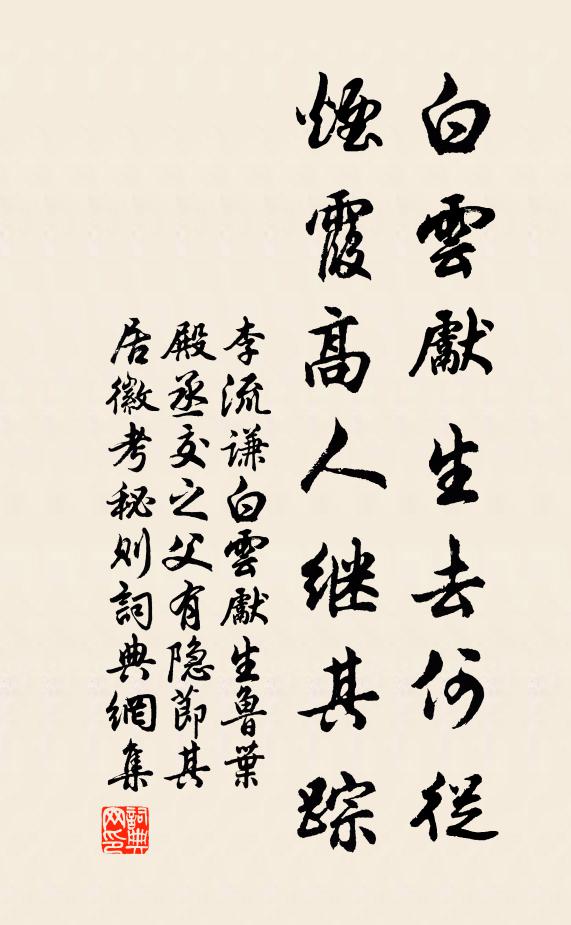 白雲獻生去何從
煙霞高人继其踪
李流謙白雲獻生魯葉
殿丞交之父有隐節其
居徽考秘则詞典網集
詞典网印